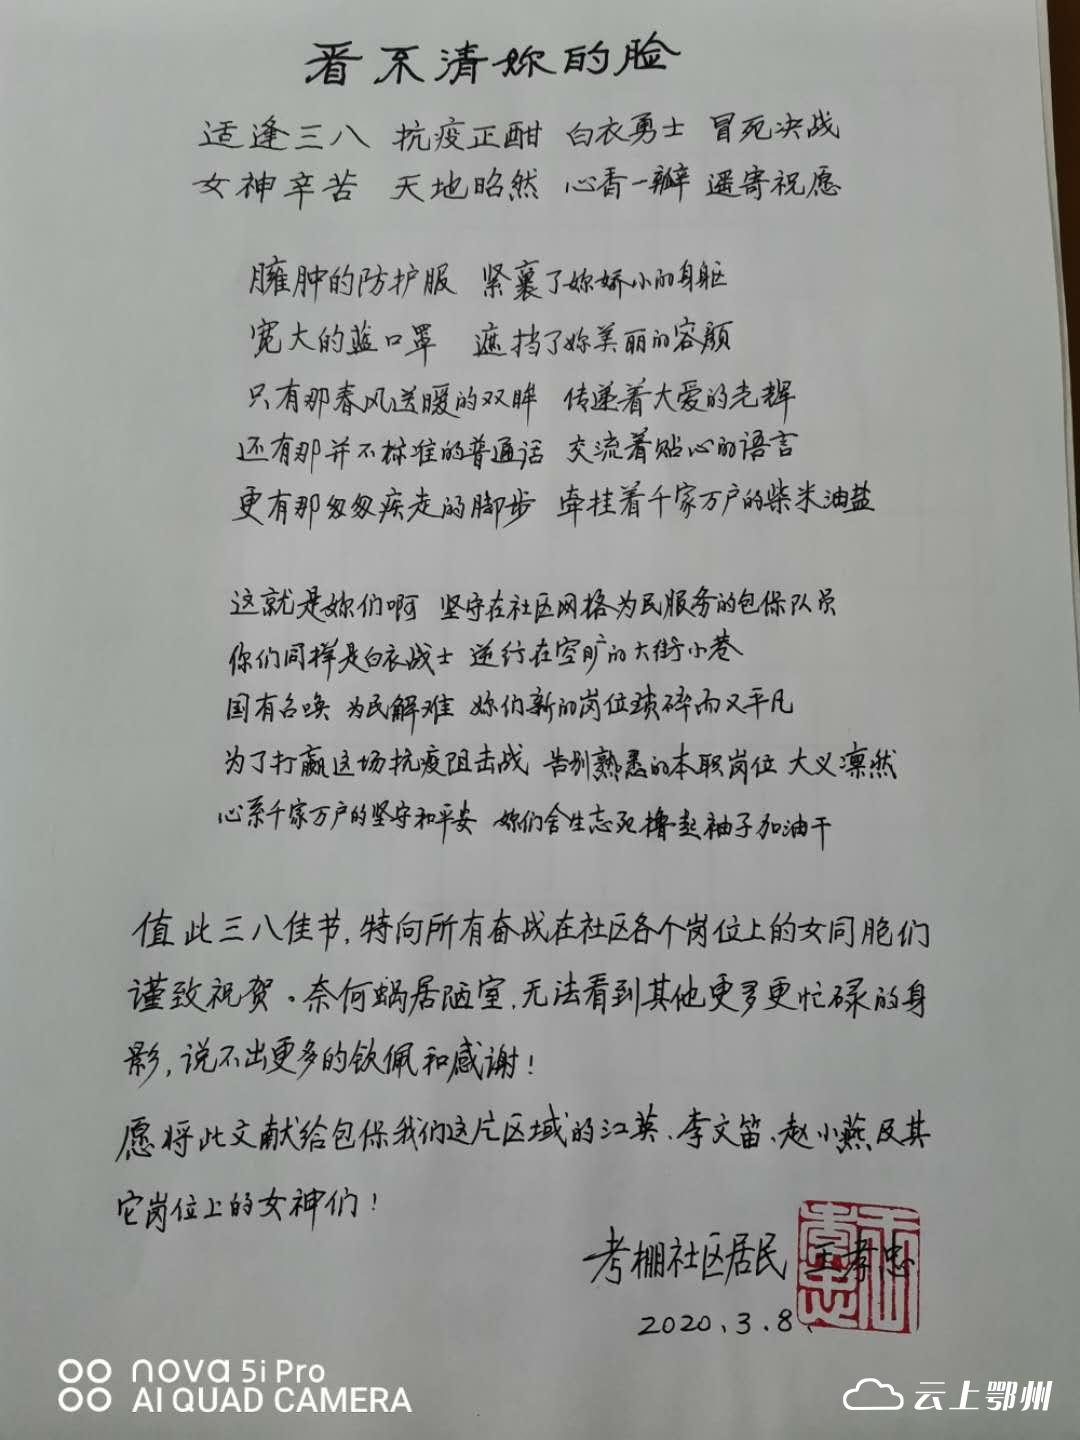 看不清妳的脸
适逢三八 抗疫正酣 白衣勇士 冒死决战
女神辛苦 天地昭然 心香一瓣 遥寄祝愿
臃肿的防护服 紧裹了妳娇小的身躯
宽大的蓝口罩 遮挡了妳美丽的容颜
只有那春风送暖的双眸 传递着大爱的光辉
还有那并不标准的普通话 交流着贴心的语言
更有那匆匆疾走的脚步 牵挂着千家万户的柴米油盐
这就是妳们啊 坚守在社区网格为民服务的包保队员
你们同样是白衣战士 逆行在空旷的大街小巷
国有召唤 为民解难 妳们新的岗位琐碎而又平凡
为了打赢这场抗疫阻击战 告别熟悉的本职岗位 大义凛然
心系千家万户的坚守和平安 妳们舍生忘死撸起袖子加油干
值此三八佳节,特向所有奋战在社区各个岗位上的女同胞们
谨致祝贺。奈何蜗居陋室,无法看到其他更多更忙碌的身
影,说不出更多的钦佩和感谢!
愿将此文献给包保我们这片区域的江英、李文笛、赵小燕及其
它岗位上的女神们!
考棚社区居民 王孝忠
2020.3.8.
nova 5i Pro
AI QUAD CAMERA
云上鄂州